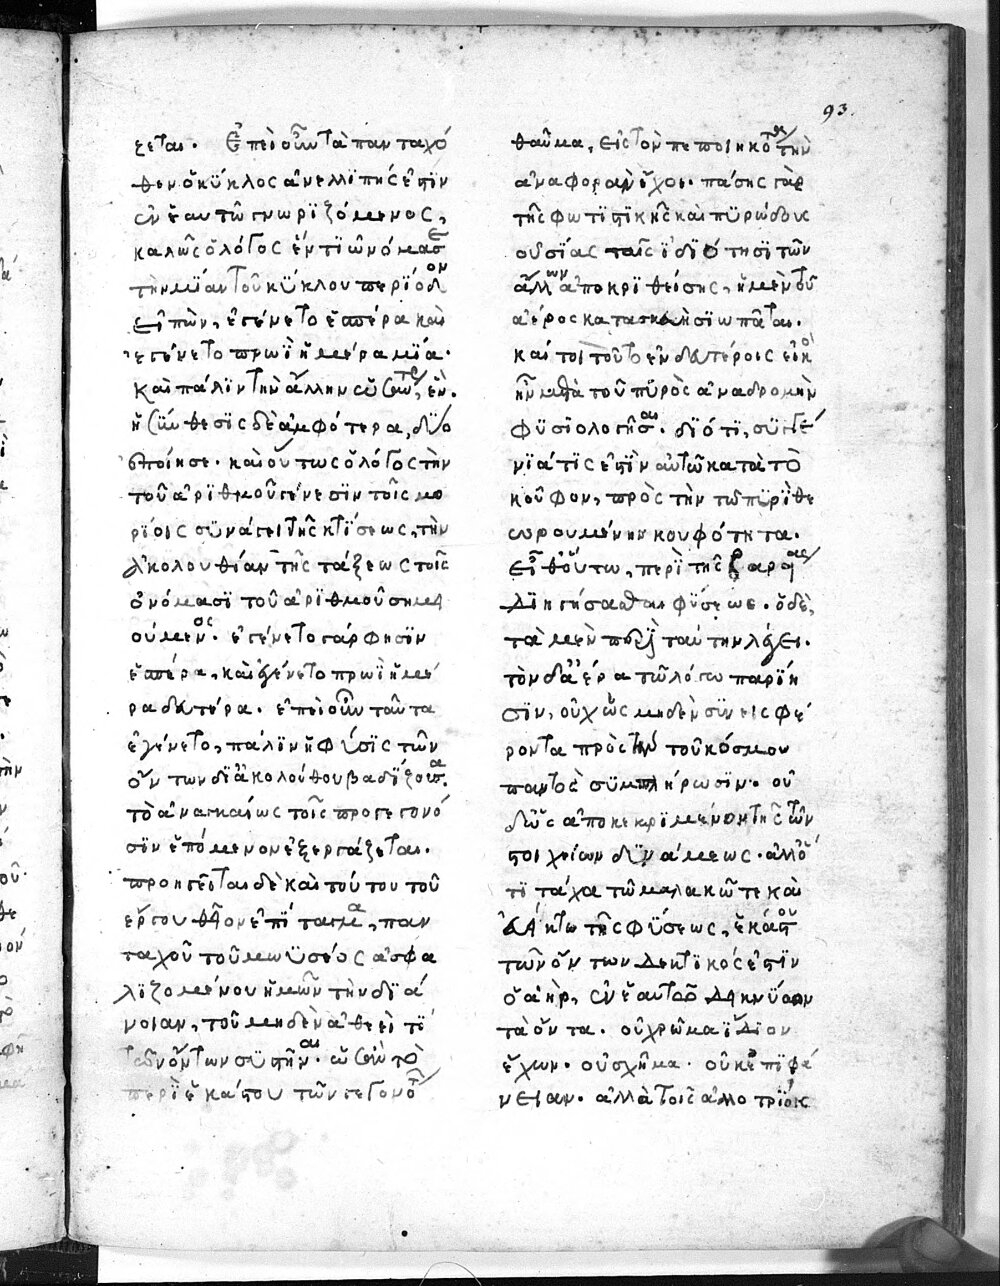 93.
ζεται. Ἐπεὶ οὖν τὰ πανταχό
θεν ὁ κύκλος ἀνελλιπής ἐστιν
ἐν ἑαυτῶ γνωριζόμενος,
καλῶς ὁ λόγος ἕν τι ὠνόμασε
τὴν μίαν τοῦ κύκλου περίοδον
εἰπὼν, ἐγένετο ἑσπέρα καὶ
ἐγένετο πρωῒ ἡμέρα μία.
καὶ πάλιν τὴν ἄλλην ὡσαύτως, ἕν.
ἡ σύνθεσις δὲ ἀμφότερα, δύο
ἐποίησε. καὶ οὕτως ὁ λόγος τὴν
τοῦ ἀριθμοῦ γένεσιν τοῖς μο
ρίοις συνάγει τῆς κτίσεως, τὴν
ἀκολουθίαν τῆς τάξεως τοῖς
ὀνόμασι τοῦ ἀριθμοῦ σημει
ούμενος. ἐγένετο γάρ φησιν
ἑσπέρα, καὶ ἐγένετο πρωῒ ἡμέ
ρα δευτέρα. ἐπεὶ οὖν ταῦτα
ἐγένετο, πάλιν ἡ φύσις τῶν
ὄντων δι' ἀκολούθου βαδίζουσα
τὸ ἀναγκαίως τοῖς προγεγονό
σιν ἑπόμενον ἐξεργάζεται.
προηγεῖται δὲ καὶ τούτου τοῦ
ἔργου θεῖον ἐπίταγμα, παν
ταχοῦ τοῦ μωϋσέος ἀσφα
λιζομένου ἡμῶν τὴν διά
νοιαν, τοῦ μηδὲν ἀθεεί τι
τῶν ὄντων συστῆναι. ὡς ἂν τὸ
περὶ ἑκάστου τῶν γεγονότων
θαῦμα, εἰς τὸν πεποιηκότα τὴν
ἀναφορὰν ἔχοι. πάσης γὰρ
τῆς φωτιστικῆς καὶ πυρώδους
οὐσίας ταῖς ἰδιότησι τῶν
ἄλλων ἀποκριθείσης, ἡ μὲν τοῦ
ἀέρος κατασκευὴ σιωπᾶται.
καί τοι τοῦτο ἐν δευτέροις εἰκὸς
ἦν μετὰ τοῦ πυρὸς ἀναδρομὴν
φυσιολογῆσαι. διότι, συγγέ
νιά τις ἐστὶν αὐτῶ κατὰ τὸ
κοῦφον, πρὸς τὴν τῶ πυρὶ θε
ωρουμένην κουφότητα.
εἶθ' οὕτω, περὶ τῆς βαρείας
διηγήσασθαι φύσεως. ὁ δὲ,
τὰ μὲν περὶ ταύτην λέγει.
τὸν δὲ ἀέρα τῶ λόγω παρίη
σιν, οὐχ ὡς μηδὲν συνεισφέ
ροντα πρὸς τὴν τοῦ κόσμου
παντὸς συμπλήρωσιν. οὐ
δ' ὡς ἀποκεκριμένον τῆς τῶν
στοιχείων δυνάμεως. ἀλλ' ὅ
τι τάχα τῶ μαλακῶ τε καὶ
εὐείκτω τῆς φύσεως, ἑκάστου
τῶν ὄντων δεκτικός ἐστιν
ὁ ἀὴρ, ἐν ἑαυτῶ δεικνύων
τὰ ὄντα. οὐ χρῶμα ἴδιον
ἔχων. οὐ σχῆμα. οὐκ ἐπιφά
νειαν. ἀλλὰ τοῖς ἀλλοτρίοις